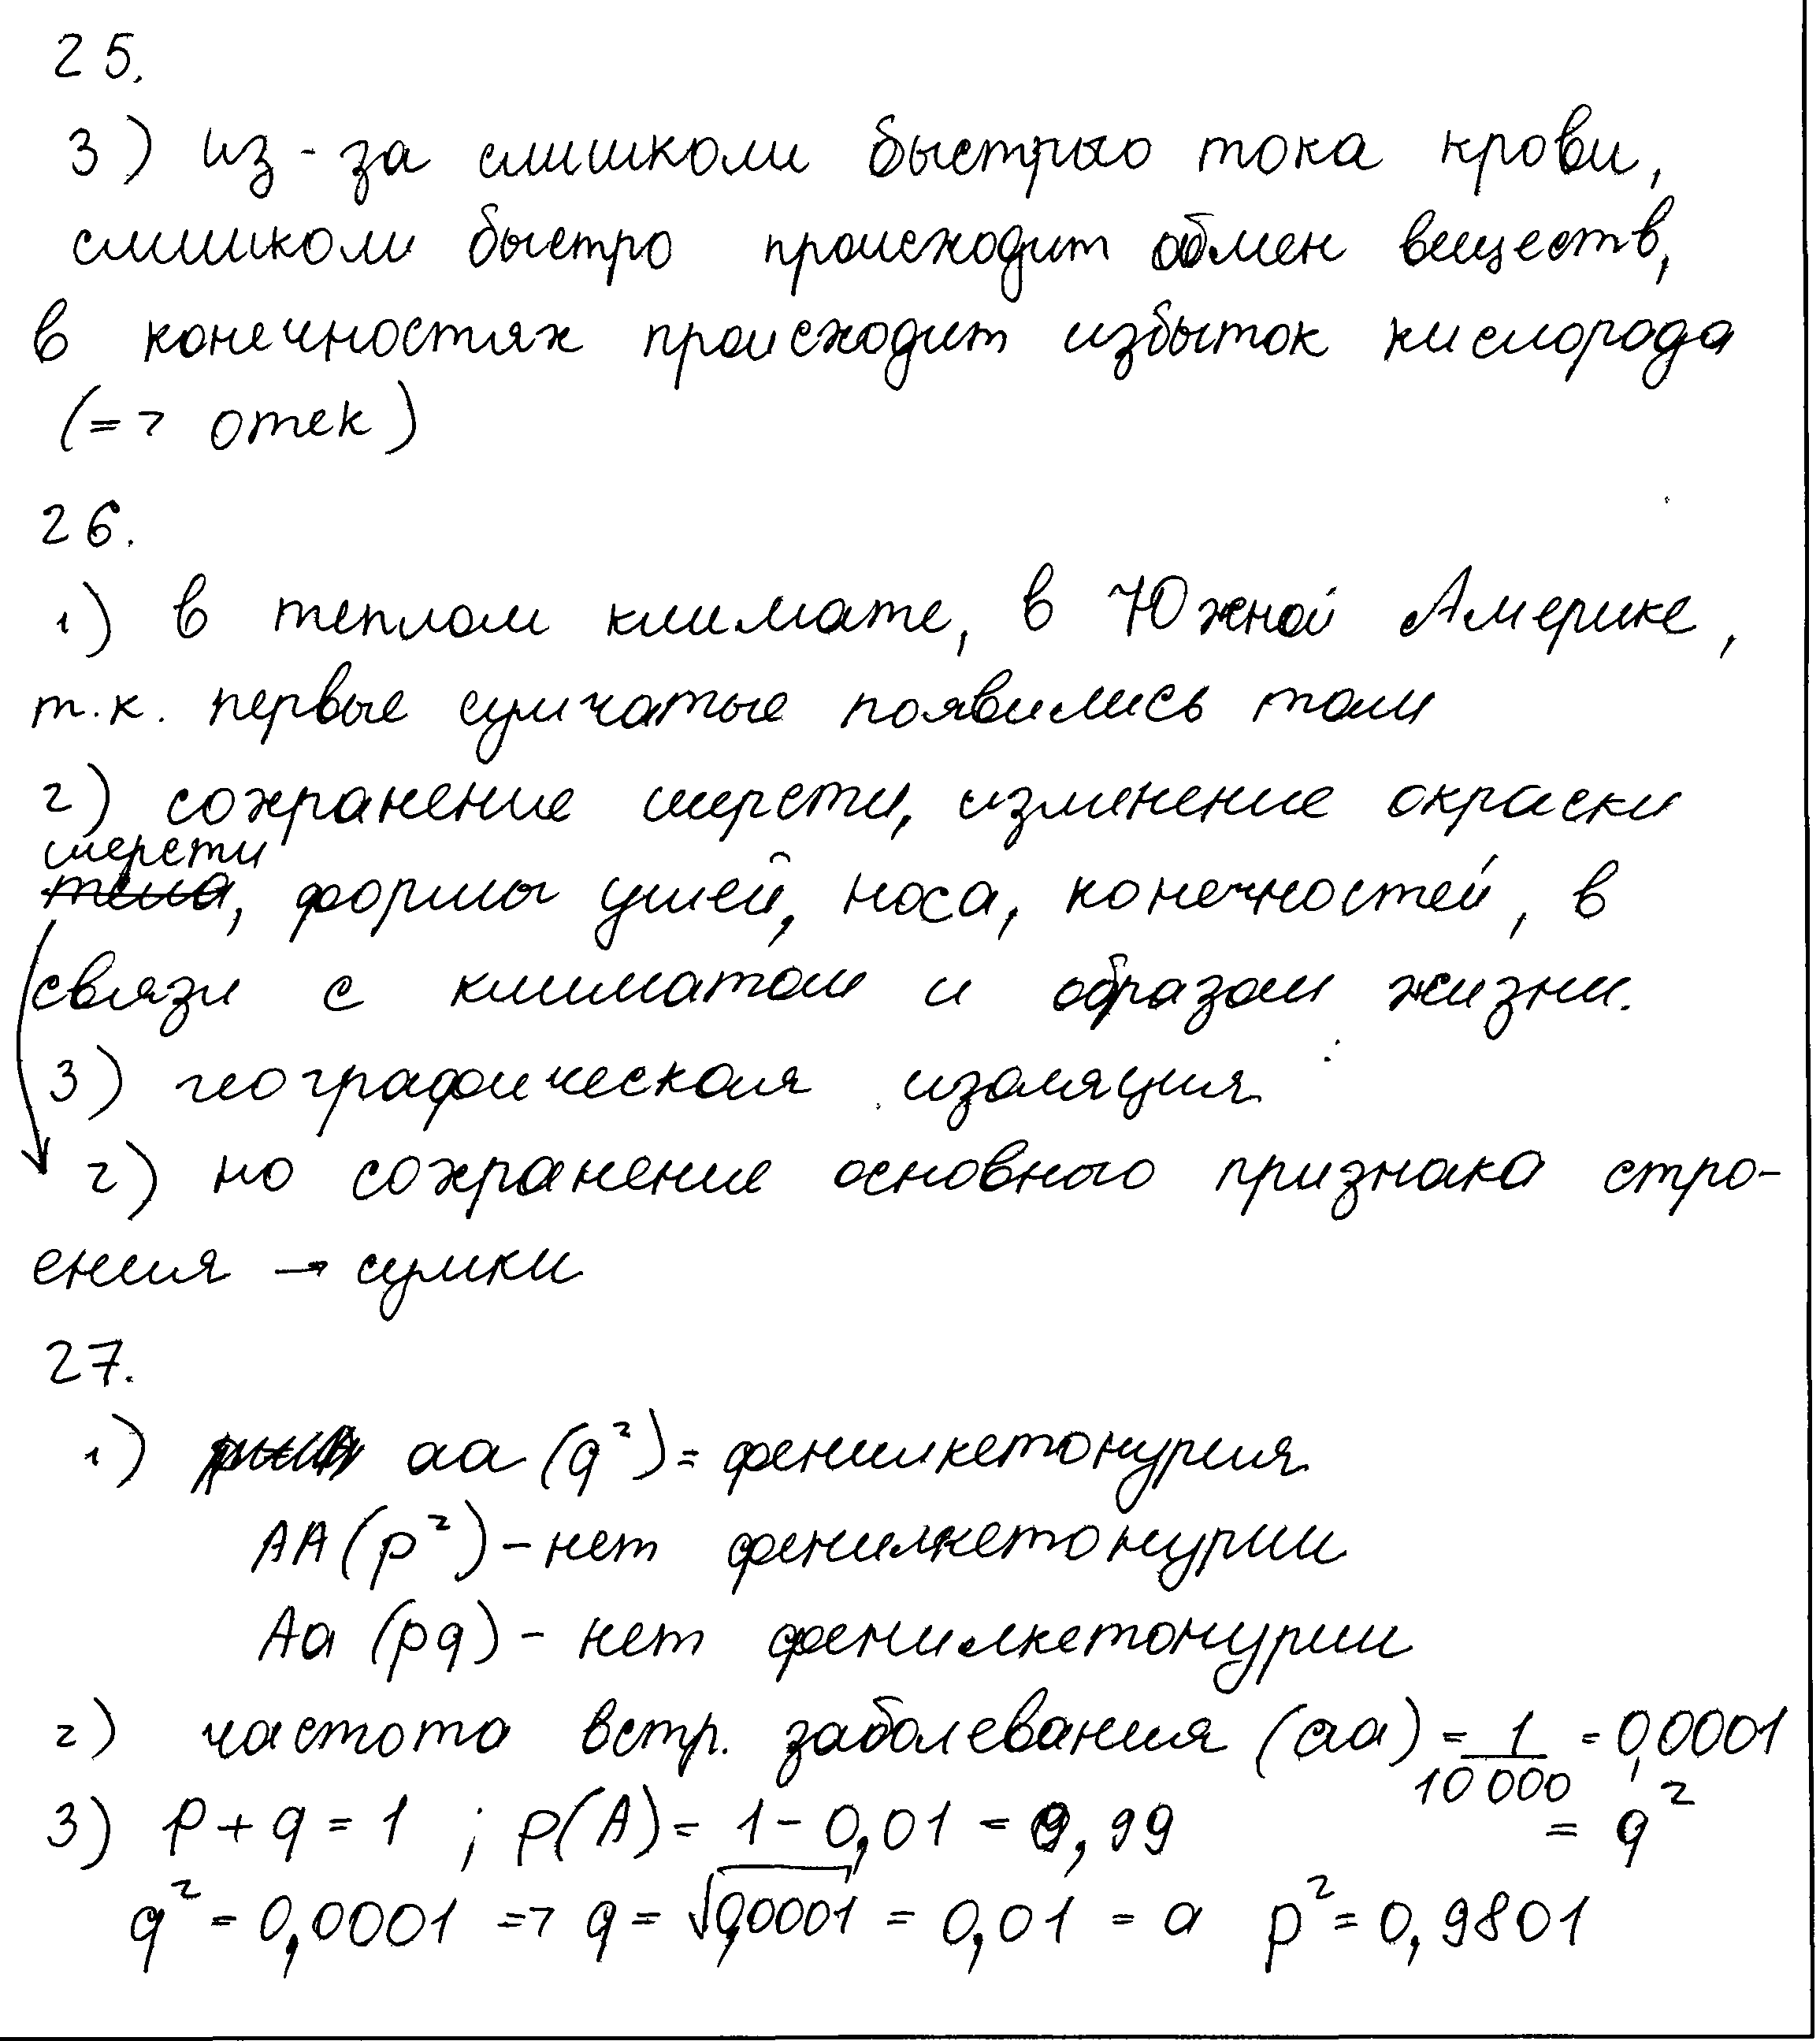 25.
3) из-за слишком быстрого тока крови,
слишком быстро происходит обмен веществ,
в конечностях происходит избыток кислорода
(=> отек)
26.
1) в теплом климате, в Южной Америке,
т.к. первые сумчатые появились там
2) сохранение шерсти, изменение окраски
шерсти
тела, формы ушей, носа, конечностей, в
связи с климатом и образом жизни.
3) географическая изоляция
2) но сохранение основного признака стро-
ения → сумки
27.
1) aa (q²) = фенилкетонурия
AA (p²) – нет фенилкетонурии
Aa (pq) – нет фенилкетонурии
2) частота встр. заболевания (aa) = 1/10 000 = 0,0001
= q²
3) p + q = 1 ; p(A) = 1 – 0,01 = 0,99
q² = 0,0001 => q = √0,0001 = 0,01 = a p² = 0,9801